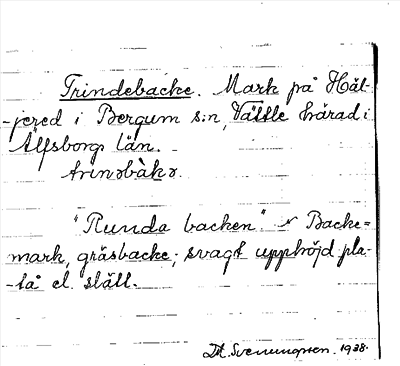 Trindebacke. Mark på Häl-
-jered i Bergum s:n, Vättle härad i
Älfsborgs län.
trinɘbàkɘ.
"Runda backen" Backe=
mark, gräsbacke; svagt upphöjd pla-
-tå el. slätt.
Svenungsson. 1938.